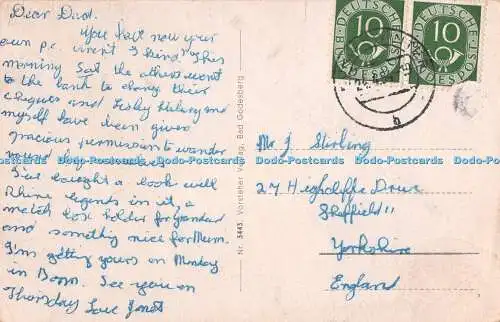 Dear Dad.
You have now your
own p.c. aren't I kind? This
morning Sat the others went
to the bank to change their
cheques and Lesley Hilary and
myself have been given
gracious permission to wander
round by ourselves.
I've bought a book will
Rhine legends in it, a
match box holder for Grandad
and something nice for Mum.
I'm getting yours on Monday
in Bonn. See you on
Thursday Love Janet
Nr. 5443 Vorsteher Verlag, Bad Godesberg
DEUTSCHE BUNDESPOST
10
DEUTSCHE BUNDESPOST
10
b
Mr J Stirling
27 Highcliffe Drive
Sheffield 11
Yorkshire
England
Dodo-Postcards Dodo-Postcards Dodo-Postcards Dodo-Postcards Dodo-Postcards